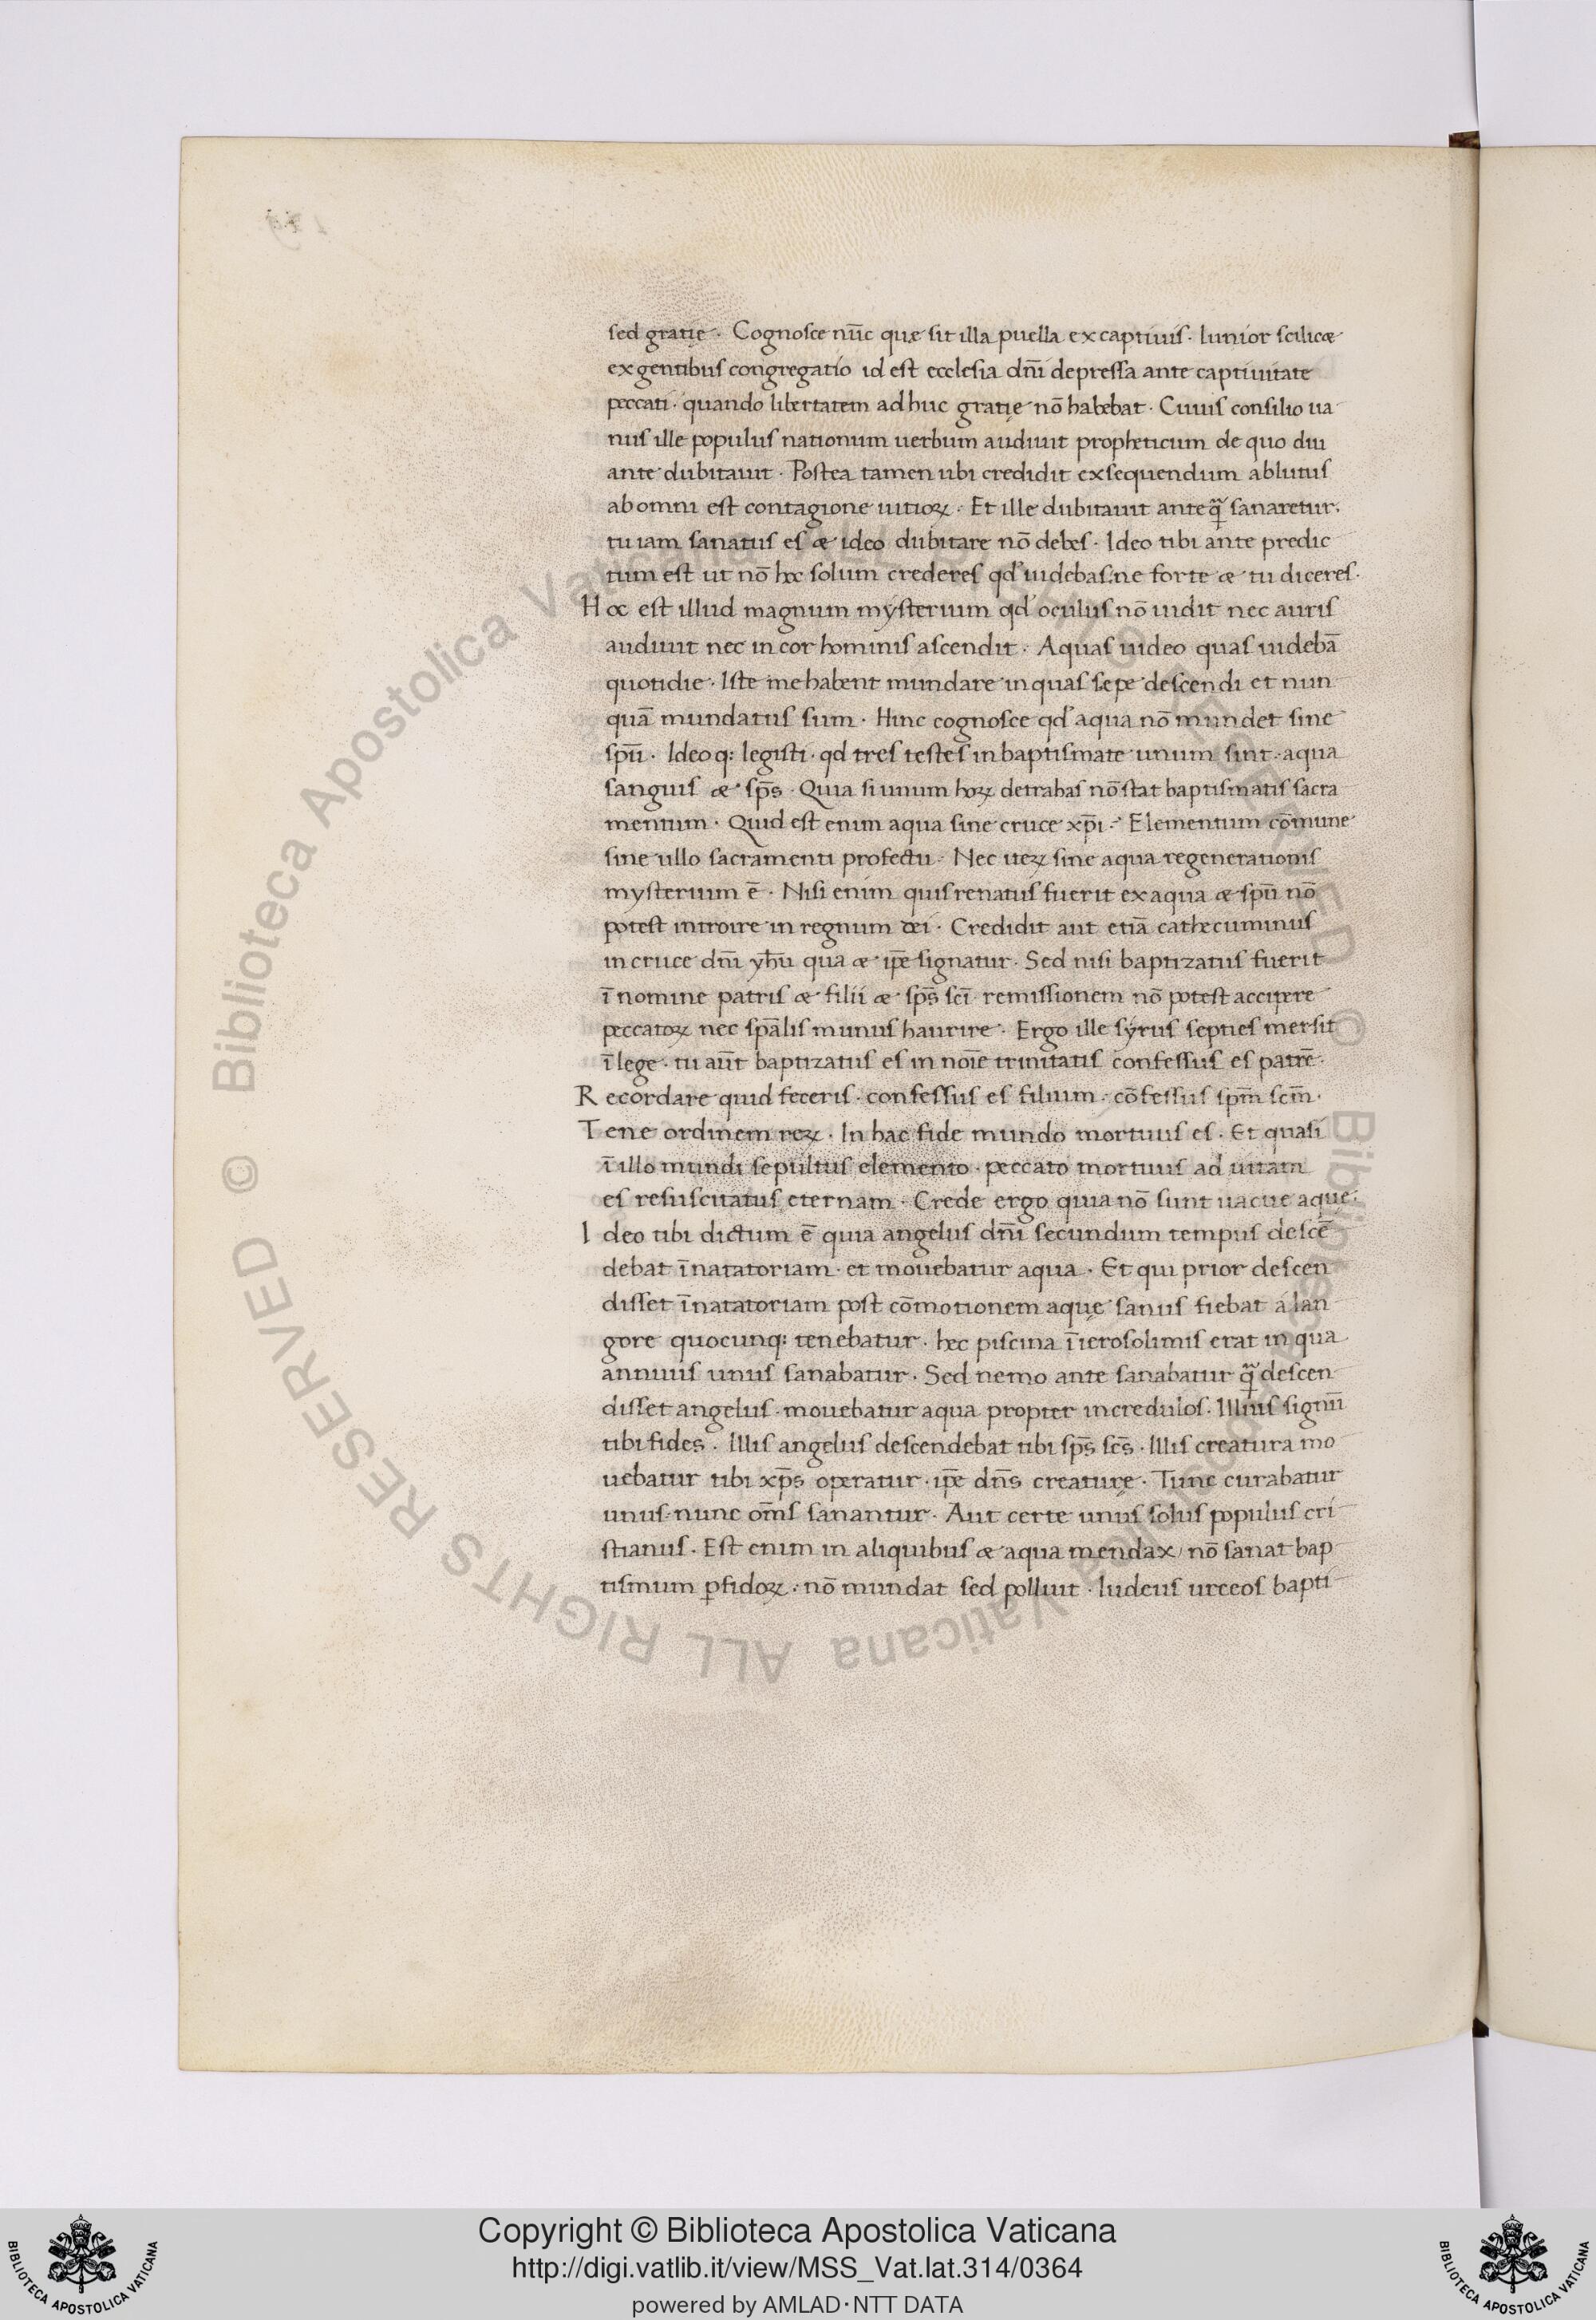 sed gratię · Cognosce nūc quæ sit illa puella ex captiuis · Iunior scilicæ
ex gentibus congregatio id est ecclesia dn̄i depressa ante captiuitate
peccati · quando libertatem adhuc gratię nō habebat · Cuius consilio ua
nus ille populus nationum uerbum audiuit propheticum de quo diu
ante dubitauit · Postea tamen ubi credidit exsequendum ablutus
ab omni est contagione uitioꝝ · Et ille dubitauit anteq̃ sanaretur.
tu iam sanatus es æ ideo dubitare nō debes · Ideo tibi ante predic
tum est ut nō hoc solum crederes qd' uidebas: ne forte æ tu diceres ·
Hoc est illud magnum mysterium qd' oculus nō uidit nec auris
audiuit nec in cor hominis ascendit · Aquas uideo quas uidebā
quotidie · Iste me habent mundare in quas sępe descendi et nun
quā mundatus sum · Hinc cognosce qd' aqua nō mundet sine
spū · Ideoq: legisti · qd tres testes in baptismate unum sint · aqua
sanguis æ sp̄s · Quia si unum hoꝝ detrahas nō stat baptismatis sacra
mentum · Quid est enim aqua sine cruce xp̄i · Elementum cōmune
sine ullo sacramenti profectu · Nec ueꝝ sine aqua regenerationis
mysterium ē · Nisi enim quis renatus fuerit ex aqua æ spū nō
potest introire in regnum dei · Credidit aut etiā cathecuminus
in cruce dn̄i yħu qua æ ip̄e signatur · Sed nisi baptizatus fuerit
ī nomine patris æ filii æ sp̄s sc̄i remissionem nō potest accipere
peccatoꝝ nec sp̄alis munus haurire · Ergo ille syrus septies mersit
ī lege · tu aūt baptizatus es in noīe trinitatis confessus es patrē ·
Recordare quid feceris · confessus es filium · cōfessus spm̄ scm̄ ·
Tene ordinem reꝝ · In hac fide mundo mortuus es · Et quasi
ī illo mundi sepultus elemento · peccato mortuus ad uitam
es resuscitatus eternam · Crede ergo quia nō sunt uacue aquę ·
Ideo tibi dictum ē quia angelus dn̄i secundum tempus descē
debat ī natatoriam · et mouebatur aqua · Et qui prior descen
disset ī natatoriam post cōmotionem aquę sanus fiebat a lan
gore quocunq: tenebatur · hęc piscina ī ierosolimis erat in qua
annuus unus sanabatur · Sed nemo ante sanabatur q̃ descen
disset angelus · mouebatur aqua propter incredulos · Illius signū
tibi fides · Illis angelus descendebat tibi sp̄s sc̄s · Illis creatura mo
uebatur tibi xp̄s operatur · ip̄e dn̄s creaturę · Tunc curabatur
unus · nunc om̄s sanantur · Aut certe unus solus populus cri
stianus · Est enim in aliquibus æ aqua mendax / nō sanat bap
tismum ꝑfidoꝝ · nō mundat sed polluit · Iudeus urceos bapti
© Biblioteca Apostolica Vaticana ALL RIGHTS RESERVED © Biblioteca Apostolica Vaticana ALL RIGHTS RESERVED
Copyright © Biblioteca Apostolica Vaticana
http://digi.vatlib.it/view/MSS_Vat.lat.314/0364
powered by AMLAD·NTT DATA
BIBLIOTECA APOSTOLICA VATICANA
BIBLIOTECA APOSTOLICA VATICANA